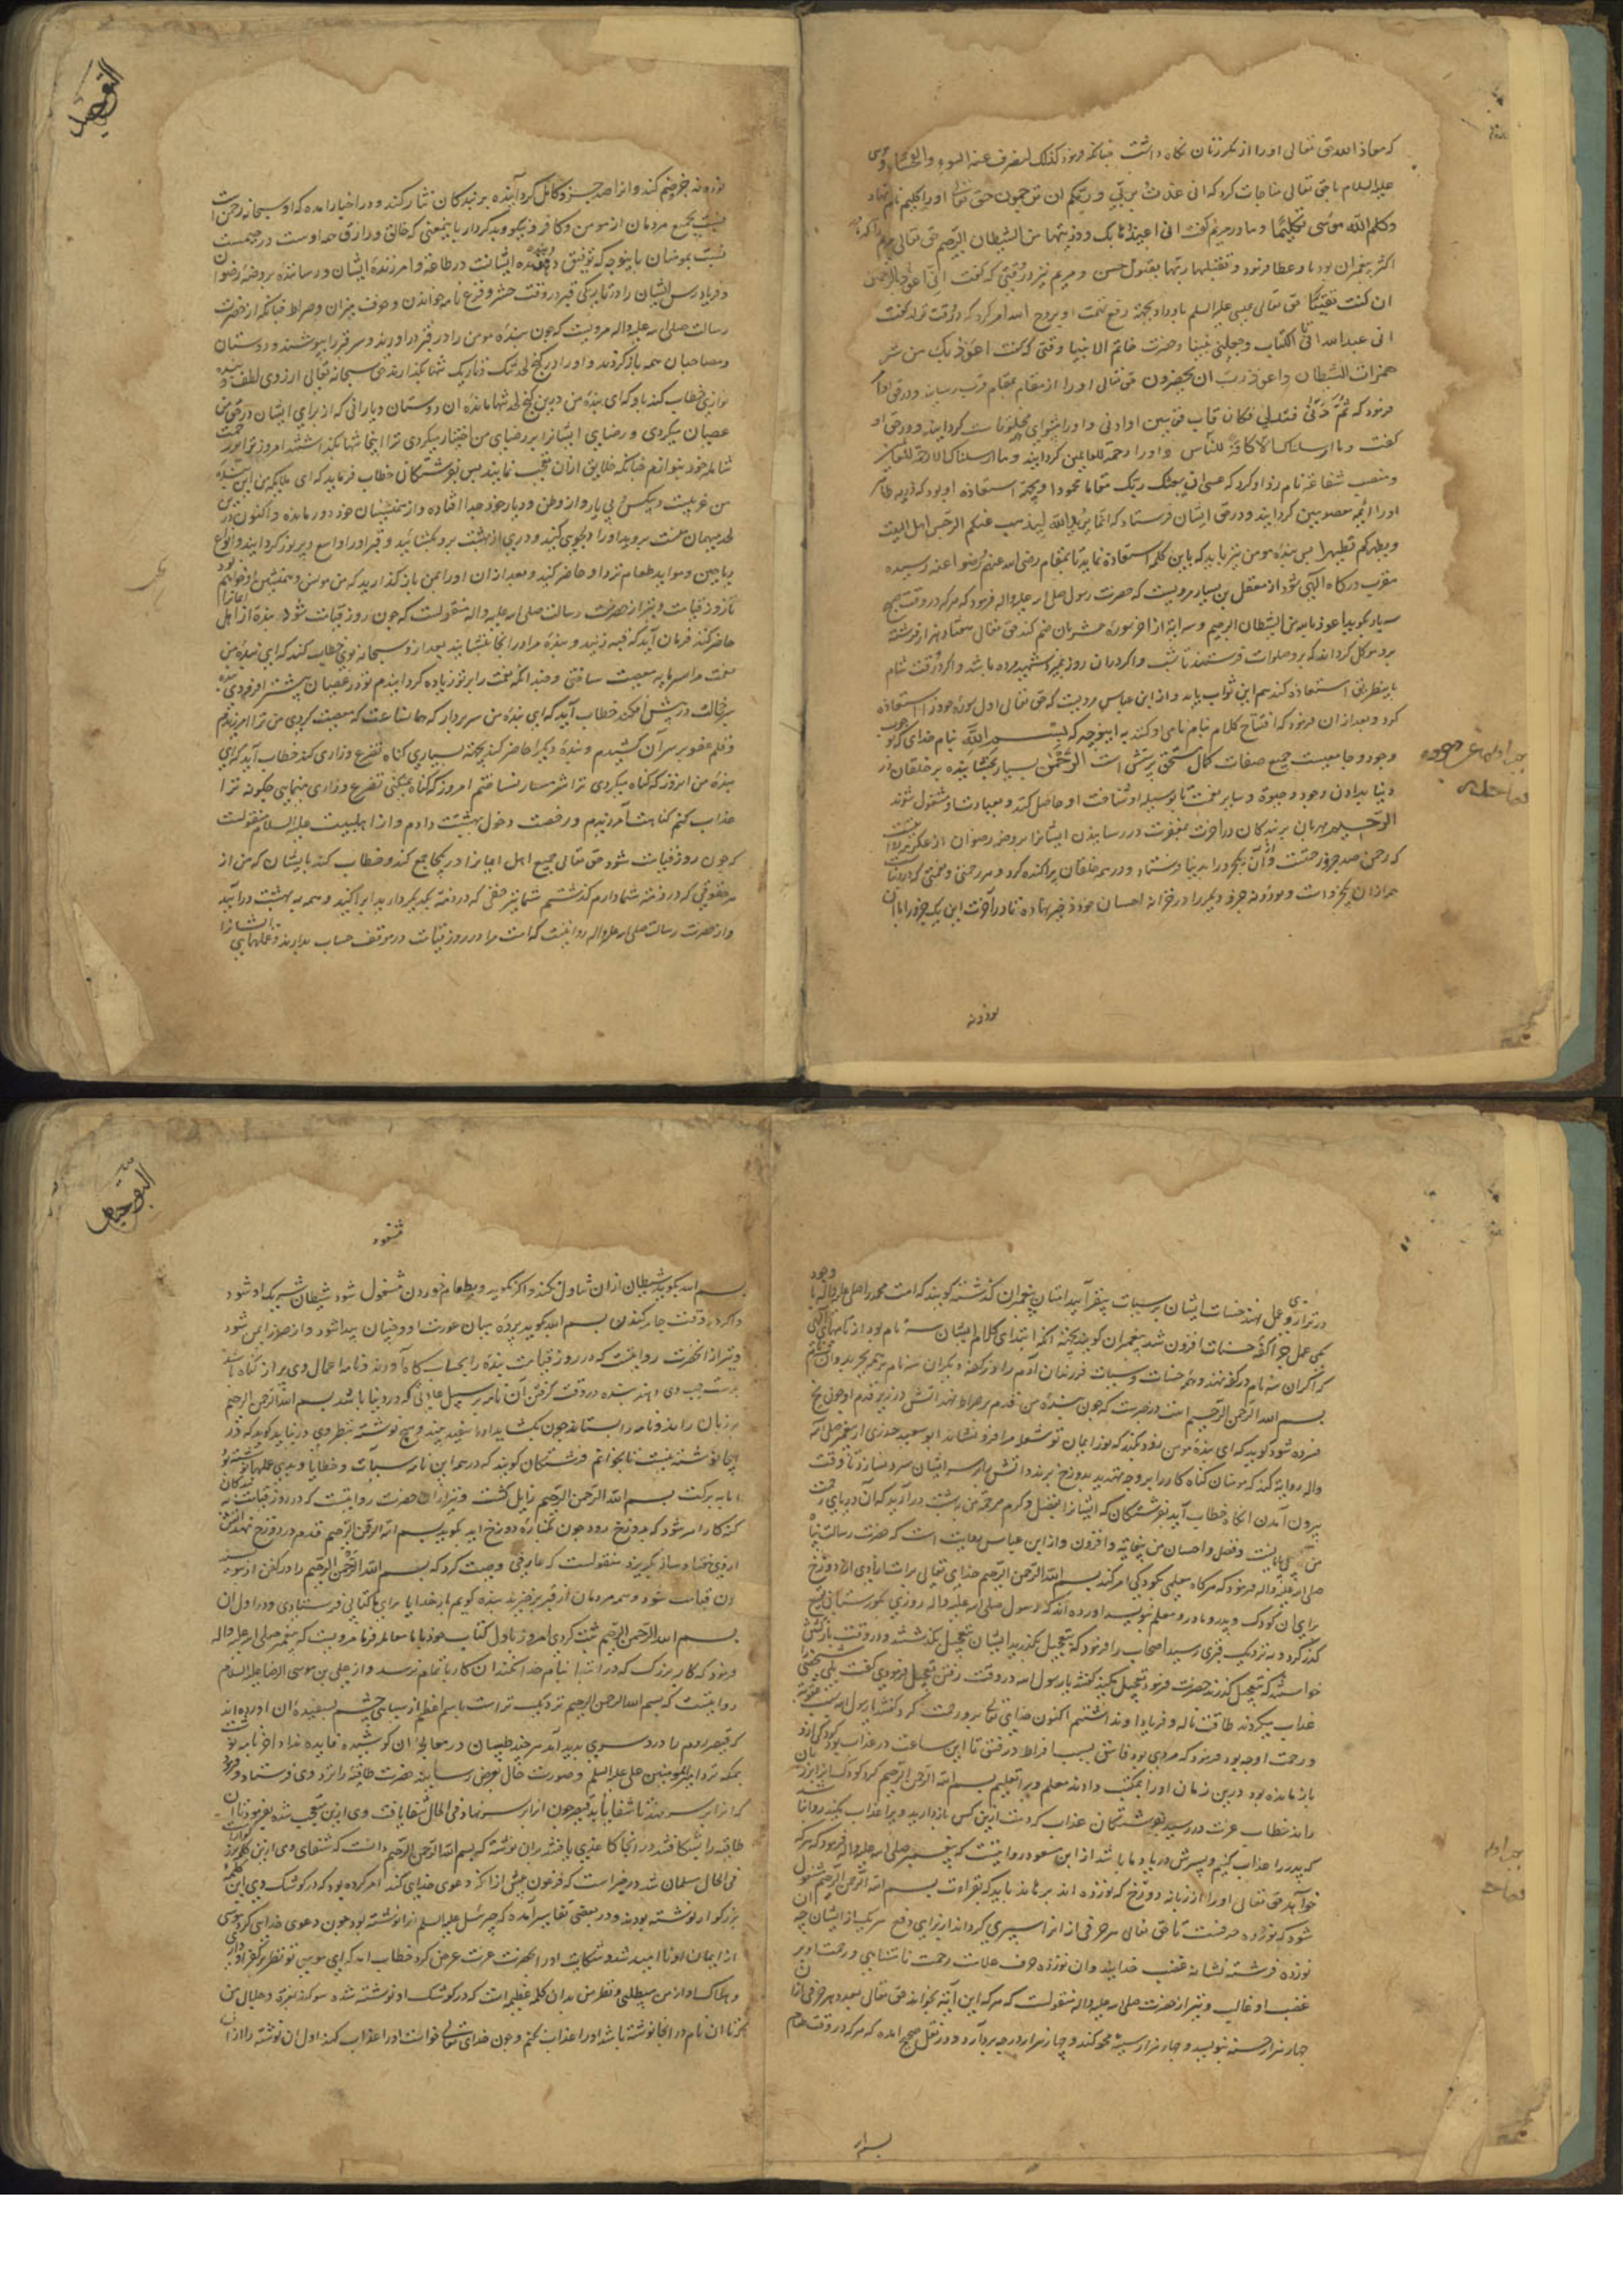 که معاذ الله حق تعالی او را از مکر زنان نگاه داشت چنانکه فرمود کذلک لنصرف عنه السوء والفحشاء و موسی
علیه السلام با حق تعالی مناجات کرد که انی عذت بربی و ربکم ان ترجمون حق تعالی او را کلیم نام نهاد
و کلم الله موسی تکلیما و مادر مریم گفت انی اعیذها بک و ذریتها من الشیطان الرجیم حق تعالی مریم را که مادر
اکثر پیغمبران بود باو عطا فرمود و تقبلها ربها بقبول حسن و مریم نیز در وقتی که گفت انی اعوذ بالرحمن
ان کنت تقیا حق تعالی عیسی علیه السلم باو داد و بجهة رفع تهمت او بروح الله امر کرد که در وقت تولد گفت
انی عبد الله اتانی الکتاب و جعلنی نبیا و حضرت خاتم الانبیا وقتی که گفت اعوذ بک من شر
همزات الشیطان واعوذ بک رب ان یحضرون حق تعالی او را از مقام بمقام قرب رسانید و در حق او
فرمود که ثم دنی فتدلی فکان قاب قوسین او ادنی و او را پیشوای مخلوقات گردانید و در حق او
گفت وما ارسلناک الا کافة للناس و او را رحمة للعالمین گردانید وما ارسلناک الا رحمة للعالمین
و منصب شفاعة نام زد او کرد که عسی ان یبعثک ربک مقاما محمودا و بجهة استعاذه او بود که ذریه طاهره
او را ائمه معصومین گردانید و در حق ایشان فرستاد که انما یرید الله لیذهب عنکم الرجس اهل البیت
و یطهرکم تطهیرا پس بنده مومن نیز باید که باین کلمه استعاذه نماید تا بمقام رضی الله عنهم و رضوا عنه رسیده
مقرب درگاه الهی شود از معقل بن یسار مرویست که حضرت رسول صلی الله علیه واله فرمود که هر که در وقت صبح
سه بار بگوید اعوذ بالله من الشیطان الرجیم و سه ایة از اخر سورة حشر بان ضم کند حق تعالی هفتاد هزار فرشته
برو موکل گرداند که برو صلوات فرستند تا شب و اگر در ان روز بمیرد شهید مرده باشد و اگر در وقت شام
باین طریق استعاذه کند هم این ثواب یابد و از ابن عباس مرویست که حق تعالی اول سوره خود را استعاذه
کرد و بعد از ان فرمود که افتتاح کلام بنام نامی او کنند به اینوجه که بسم الله بنام خدای که
وجود و جامعیت جمیع صفات کمال مستحق پرستش است الرحمن بسیار بخشاینده بر خلقان در
دنیا بدادن وجود و حیوة و سایر نعمت تا بوسیله او شناخت او حاصل کنند و بعبادت او مشغول شوند
الرحیم مهربان بر بندگان در آخرت بمغفرت و در رسانیدن ایشانرا بروضه رضوان
که رحمن صد جزو رحمتست و از آن یکجزو را بدنیا فرستاد و در همه خلقان پراکنده کرد و هر رحمتی و محبتی که در دنیا
همه از ان یکجزو است و نود و نه جزو دیگر را در خزانه احسان خود ذخیره نهاده تا در آخرت این یک جزو را با ان
نود و نه
نود و نه جزو ضم کند و انرا صد جزو کامل گردانیده بر بندگان نثار کند و در اخبار امده که او سبحانه رحمن است
نسبت بجمیع مردمان از مومن و کافر و نیکو و بد کردار باینمعنی که خالق و رازق همه اوست و رحیمست
نسبت بمومنان باینوجه که توفیق دهنده ایشانست در طاعة و امرزنده ایشان و رساننده بروضة رضوان
و فریاد رس ایشان را در تاریکی قبر در وقت حشر و فزع نامه خواندن و خوف میزان و صراط چنانکه از حضرت
رسالت صلی الله علیه واله مرویست که چون بنده مومن را در قبر در اورند و سر قبر را بپوشند و دوستان
و مصاحبان همه باز گردند و او را در کنج لحد تنک و تاریک تنها بگذارند حق سبحانه تعالی از روی لطف و بنده
نوازی خطاب کند باو که ای بنده من درین کنج لحد تنها مانده ان دوستان و یارانی که از برای ایشان در حق من
عصیان میکردی و رضای ایشانرا بر رضای من اختیار میکردی ترا اینجا تنها بگذاشتند امروز ترا بر رحمت
شامله خود بنوازم چنانکه خلایق از ان تعجب نمایند پس بفرشتگان خطاب فرماید که ای ملایکه من این بنده
من غریبست و بیکس و بی یار و از وطن و دیار خود جدا افتاده و از همنشینان خود دور مانده و اکنون درین
لحد مهمان منست بروید او را دلجوی کنید و دری از بهشت برو بگشائید و قبر او را واسع و پر نور گردانید و انواع
ریاحین و مواید طعام نزد او حاضر کنید و بعد از ان او را بمن باز گذارید که من مونس و همنشین او خواهم بود
تا روز قیامت و نیز از حضرت رسالت صلی الله علیه واله منقولست که چون روز قیامت شود بنده از اهل ایمانرا
حاضر کنند فرمان آید که قبه زنید و بنده مرا در انجا بنشانید بعد از ان او سبحانه بوی خطاب کند که ای بنده من
نعمت مرا سرمایه معصیت ساختی و چندانکه نعمت را بر تو زیاده گردانیدم تو در عصیان بیشتر افزودی بنده
سر خجالت در پیش افکند خطاب آید که ای بنده من سر بردار که همان ساعت که معصیت کردی من ترا امرزیدم
و قلم عفو بر سر آن کشیدم و بنده دیگر را حاضر کنند بجهة بسیاری گناه تضرع و زاری کند خطاب آید که ای
بنده من ان روز که گناه میکردی ترا شرمسار نساختم امروز که گناه نمیکنی تضرع و زاری مینمایی چگونه ترا
عذاب کنم گناهت آمرزیدم و رخصت دخول بهشت دادم و از اهلبیت علیه السلام منقولست
که چون روز قیامت شود حق تعالی جمیع اهل ایمانرا در یکجا جمع کند و خطاب کند بایشان که من از
هر حقوقی که در ذمه شما دارم گذشتم شما نیز حقی که در ذمه یکدیگر دارید ابرا کنید و همه به بهشت درآیید
و از حضرت رسالت صلی الله علیه واله روایتست که امت مرا در روز قیامت در موقف حساب بدارند و عملهای ایشانرا
در ترازوی عمل نهند حسنات ایشان بر سیات بیفزاید امتان پیغمبران گذشته گویند که امت محمد را صلی الله علیه واله با وجود
کمی عمل چرا کفة حسنات افزون شد پیغمبران گویند بجهة انکه ابتدای کلام ایشان سه نام بود از نامهای الهی
که اگر ان سه نام در کفه نهند و همه حسنات و سیات فرزندان آدم را در کفه دیگر ان سه نام برتر بچربد و ان
بسم الله الرحمن الرحیم است و در خبرست که چون بنده مومن قدم بر صراط نهد اتش در زیر قدم او چون یخ
فسرده شود گوید که ای بنده مومن زود بگذر که نور ایمان تو شعله مرا فرو نشاند ابو سعید خدری از پیغمبر صلی الله علیه
واله روایة کند که مومنان گناه کار را بروجه تهدید بدوزخ برند و اتش بر ایشان سرد سازد تا وقت
بیرون آمدن انگاه خطاب آید بفرشتگان که ایشانرا بفضل و کرم من به بهشت درآرید که آن دریای رحمت
من بی پایانست و فضل و احسان من بینهایة و افزون و از ابن عباس روایت است که حضرت رسالت پناه
صلی الله علیه واله فرمود که هرگاه معلمی کودکی را امر کند بسم الله الرحمن الرحیم خدای تعالی برات ازادی از دوزخ
برای ان کودک و پدر و مادر و معلم بنویسد اورده اند که رسول صلی الله علیه واله روزی بگورستانی
گذر کرد و به نزدیک قبری رسید اصحاب را فرمود که بتعجیل بگذرید ایشان بتعجیل بگذشتند و در وقت بازگشتن
خواستند که بتعجیل گذرند حضرت فرمود تعجیل مکنید گفتند یا رسول الله در وقت رفتن تعجیل فرمودی گفت بلی شخصی را
عذاب میکردند طاقت ناله و فریاد او نداشتم اکنون خدای تعالی برو رحمت کرد گفتند یا رسول الله سبب عقوبت
و رحمت او چه بود فرمود که مردی بود فاسق بسبب افراط در فسق تا این ساعت در عذاب بود کودکی از او
باز مانده بود درین زمان او را بمکتب دادند معلم ویرا تعلیم بسم الله الرحمن الرحیم کرد کودک انرا بر زبان
راند خطاب عزت در رسید بفرشتگان عذاب که دست ازین کس باز دارید ویرا عذاب مکنید روا نباشد
که پدر را عذاب کنیم و پسرش در یاد ما باشد از ابن مسعود روایتست که پیغمبر صلی الله علیه واله فرمود که هر که
خواهد حق تعالی او را از زبانه دوزخ که نوزده اند برهاند باید که بقراءت بسم الله الرحمن الرحیم مشغول
شود که نوزده حرفست تا حق تعالی هر حرفی از انرا سپری گرداند از برای دفع هر یک از ایشان چه ان
نوزده فرشته نشانه غضب خدایند وان نوزده حرف علامت رحمت نامتناهی و رحمت او بر
غضب او غالب و نیز از حضرت صلی الله علیه واله منقولست که هر که این آیة بخواند حق تعالی بعدد هر حرفی از ان
چهار هزار حسنه بنویسد و چهار هزار سیئه محو کند و چهار هزار درجه بردارد و در نقل صحیح امده که هر که در وقت طعام
بسم الله
بسم الله بگوید شیطان ازان تناول نکند و اگر نگوید و بطعام خوردن مشغول شود شیطان شریک او شود
و اگر در وقت جامه کندن بسم الله گوید پرده میان عورت او و جنیان پیدا شود و از ضرر ایمن شود
و نیز از انحضرت روایتست که در روز قیامت بنده را بحساب گاه آورند و نامه اعمال وی پر از گناه باشد
بدست چپ وی دهند بنده در وقت گرفتن آن نامه بر سبیل عادتی که در دنیا باشد بسم الله الرحمن الرحیم
بر زبان راند و نامه را بستاند چون بگشاید انرا سفید بیند و هیچ نوشته بنظر وی در نیاید گوید که در
اینجا نوشته نیست تا بخوانم فرشتگان گویند که در همه این نامه سیآت و خطایا و بدی عملها نوشته بود
اما به برکت بسم الله الرحمن الرحیم زایل گشت و نیز از ان حضرت روایتست که در روز قیامت بندگان
گنه کار را امر شود که بدوزخ رود چون بکنارة دوزخ اید بگوید بسم الله الرحمن الرحیم قدم در دوزخ نهد اتش
از وی هفتاد ساله بگریزد منقولست که عارفی وصیت کرد که بسم الله الرحمن الرحیم را در کفن
ان قیامت شود و همه مردمان از قبر برخیزند بنده گویم بار خدایا برای ما کتابی فرستادی و در اول ان
بسم الله الرحمن الرحیم ثبت کردی امروز باول کتاب خود با ما معامله فرما مرویست که پیغمبر صلی الله علیه واله
فرمود که کار بزرک که در ابتدا بنام خدا نکنند ان کار باتمام نرسد و از علی بن موسی الرضا علیه السلام
روایتست که بسم الله الرحمن الرحیم نزدیکتر است باسم اعظم از سیاهی چشم بسفیدی ان اورده اند
که قیصر روم را درد سری پدید آمد هرچند طبیبان در معالجه ان کوشیدند فایده نداد اخر نامه نوشت
بملک نزد امیر المومنین علی علیه السلم و صورت حال بعرض رسانید حضرت طاقیه را نزد وی فرستاد و فرمود
که انرا بر سر نهد تا شفا یابد قیصر چون انرا بر سر نهاد فی الحال شفا یافت وی ازین متعجب شده بفرمود تا ان
طاقیه را بشکافتند در انجا کاغذی یافتند بران نوشته که بسم الله الرحمن الرحیم دانست که شفای وی ازین کلمه بزرگوارست
فی الحال مسلمان شد در خبر است که فرعون پیش از انکه دعوی خدای کند امر کرده بود که در کوشک وی این کلمه
بزرگوار نوشته بودند و در بعضی تفاسیر آمده که جبرئیل علیه السلم انرا نوشته بود چون دعوی خدایی کرد موسی
از ایمان او نا امید شد و شکایت او را بحضرت عزت عرض کرد خطاب امد که ای موسی تو نظر بر کفر او داری
و هلاک او از من میطلبی و نظر من بدان کلمه عظیمه است که در کوشک او نوشته شده سوگند بعزت و جلال من
که تا ان نام در انجا نوشته باشد او را عذاب نکنم و چون خدای تعالی خواست او را عذاب کند اول ان نوشته را از ان